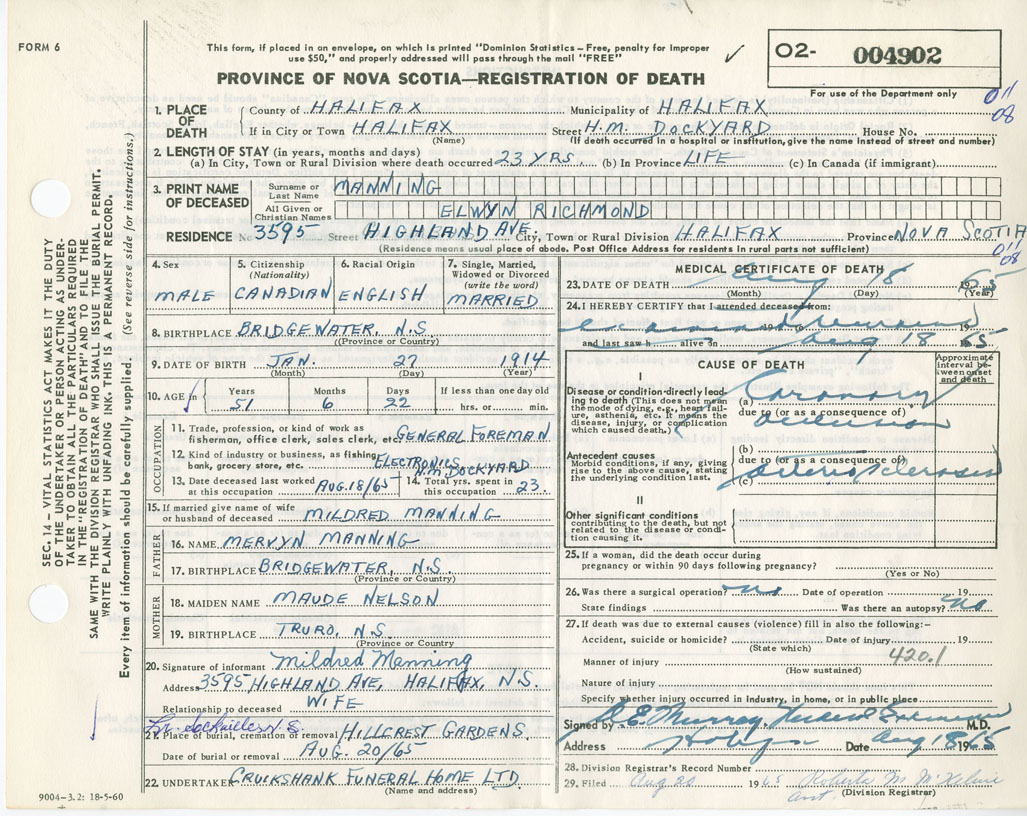 FORM 6
This form, if placed in an envelope, on which is printed "Dominion Statistics – Free, penalty for improper
use $50," and properly addressed will pass through the mail "FREE"
PROVINCE OF NOVA SCOTIA—REGISTRATION OF DEATH
02- 004902
For use of the Department only
011
08
SEC. 14 – VITAL STATISTICS ACT MAKES IT THE DUTY
OF THE UNDERTAKER OR PERSON ACTING AS UNDER-
TAKER TO OBTAIN ALL THE PARTICULARS REQUIRED
IN THE "REGISTRATION OF DEATH" AND TO FILE THE
SAME WITH THE DIVISION REGISTRAR WHO SHALL ISSUE THE BURIAL PERMIT.
WRITE PLAINLY WITH UNFADING INK. THIS IS A PERMANENT RECORD.
Every item of information should be carefully supplied. (See reverse side for instructions.)
1. PLACE OF DEATH
County of HALIFAX Municipality of HALIFAX
If in City or Town HALIFAX Street H.M. DOCKYARD House No.
(Name) (If death occurred in a hospital or institution, give the name instead of street and number)
2. LENGTH OF STAY (in years, months and days)
(a) In City, Town or Rural Division where death occurred 23 YRS (b) In Province LIFE (c) In Canada (if immigrant)
3. PRINT NAME OF DECEASED
Surname or Last Name MANNING
All Given or Christian Names ELWYN RICHMOND
RESIDENCE No 3595 Street HIGHLAND AVE. City, Town or Rural Division HALIFAX Province NOVA SCOTIA
(Residence means usual place of abode. Post Office Address for residents in rural parts not sufficient)
011
08
4. Sex MALE
5. Citizenship (Nationality) CANADIAN
6. Racial Origin ENGLISH
7. Single, Married, Widowed or Divorced (write the word) MARRIED
8. BIRTHPLACE BRIDGEWATER, N.S
(Province or Country)
9. DATE OF BIRTH JAN. 27 1914
(Month) (Day) (Year)
10. AGE Years Months Days If less than one day old
51 6 22 hrs. or min.
OCCUPATION
11. Trade, profession, or kind of work as
fisherman, office clerk, sales clerk, etc. GENERAL FOREMAN
12. Kind of industry or business, as fishing
bank, grocery store, etc. ELECTRONICS H.M. DOCKYARD
13. Date deceased last worked at this occupation AUG.18/65
14. Total yrs. spent in this occupation 23.
15. If married give name of wife
or husband of deceased MILDRED MANNING
FATHER
16. NAME MERVYN MANNING
17. BIRTHPLACE BRIDGEWATER, N.S.
(Province or Country)
MOTHER
18. MAIDEN NAME MAUDE NELSON
19. BIRTHPLACE TRURO, N.S.
(Province or Country)
20. Signature of informant Mildred Manning
Address 3595 HIGHLAND AVE, HALIFAX, N.S.
Relationship to deceased WIFE
21. Place of burial, cremation or removal HILLCREST GARDENS
Date of burial or removal AUG. 20/65
22. UNDERTAKER CRUIKSHANK FUNERAL HOME LTD.
(Name and address)
MEDICAL CERTIFICATE OF DEATH
23. DATE OF DEATH Aug 18 1965
(Month) (Day) (Year)
24. I HEREBY CERTIFY that I attended deceased from:
19 to 19
and last saw h alive on Aug 18 65
CAUSE OF DEATH
Approximate interval between onset and death
I
Disease or condition directly lead-
ing to death (This does not mean
the mode of dying, e.g., heart fail-
ure, asthenia, etc. It means the
disease, injury, or complication
which caused death.)
(a) Coronary
due to (or as a consequence of)
occlusion
Antecedent causes
Morbid conditions, if any, giving
rise to the above cause, stating
the underlying condition last.
(b)
due to (or as a consequence of)
arteriosclerosis
(c)
II
Other significant conditions
contributing to the death, but not
related to the disease or condi-
tion causing it.
25. If a woman, did the death occur during
pregnancy or within 90 days following pregnancy?
(Yes or No)
26. Was there a surgical operation? no Date of operation 19
State findings Was there an autopsy? no
27. If death was due to external causes (violence) fill in also the following:–
Accident, suicide or homicide? Date of injury 19
(State which)
420.1
Manner of injury
(How sustained)
Nature of injury
Specify whether injury occurred in Industry, in home, or in public place
Signed by R.E. Murray M.D.
Address Date Aug 18 1965
28. Division Registrar's Record Number
29. Filed Aug 20 1965 Roberta M. McKelvie
asst. (Division Registrar)
9004–3.2: 18-5-60